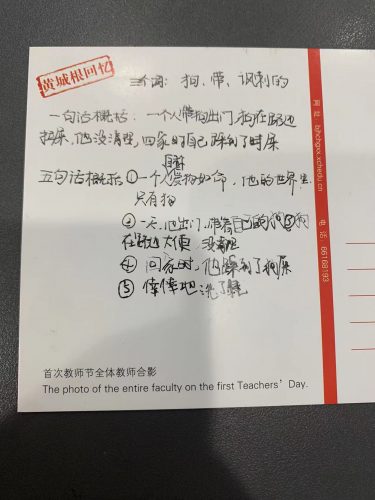 黄城根回忆
三个词：狗、带、讽刺的
一句话概括：一个人带狗出门，狗在路边
拉屎，他没清理，回家时自己踩到了屎
五句话概括 ①一个人爱狗如命，他的世界里
只有狗
②一天，他出门，带着自己的狗③狗
在路边大便，没清理
④ 回家时，他踩到了狗屎
⑤ 悻悻地洗了鞋
首次教师节全体教师合影
The photo of the entire faculty on the first Teachers' Day.
网 址：bjhchgxx.xchedu.cn
电 话：66168193